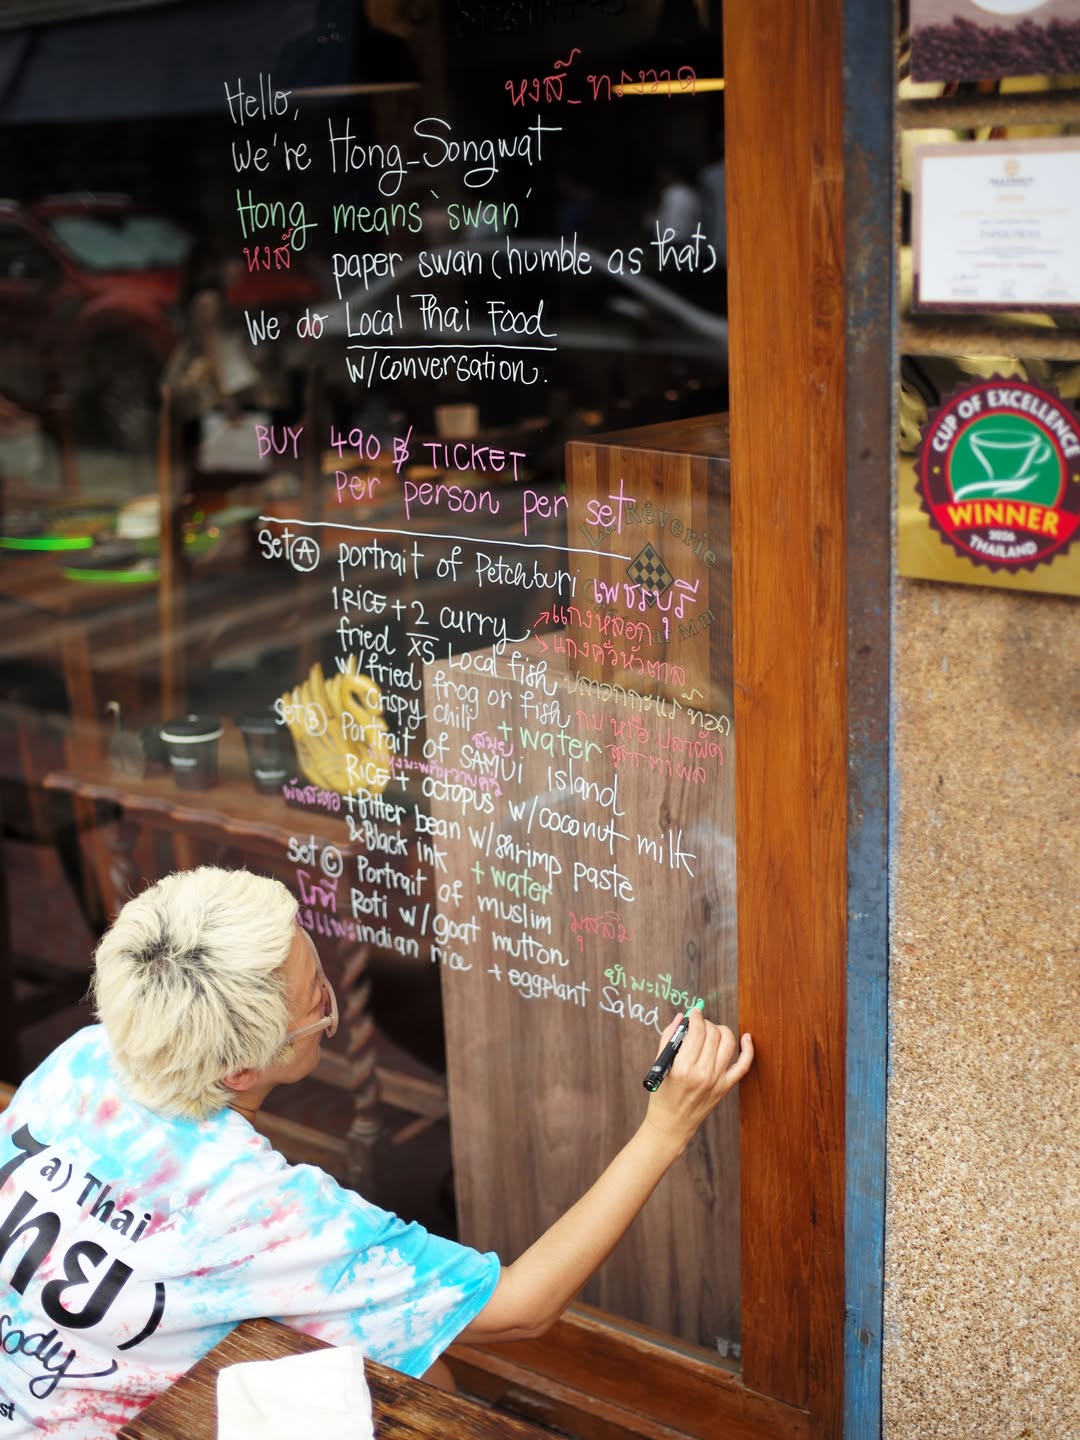 หงส์_ทรงวาด
Hello,
We're Hong_Songwat
Hong means 'swan'
หงส์ paper swan (humble as that)
We do Local Thai Food
w/conversation.
BUY 490 ฿ TICKET
Per person per set
Set A portrait of Petchburi เพชรบุรี
1 RICE + 2 curry แกงหลอก
แกงคั่วหัวตาล
fried XS Local fish ปลาอกกะแร้ ทอด
w/fried frog or fish กบ หรือ ปลาผัด
crispy chili + water
Set B Portrait of SAMUI Island สมุย
RICE + octopus w/coconut milk
+ Bitter bean w/shrimp paste ผัดสะตอ
& Black ink + water
set C Portrait of muslim มุสลิม
โรตี Roti w/goat mutton
indian rice + eggplant Salad
ยำมะเขือย
La Rêverie
CUP OF EXCELLENCE
WINNER
2026
THAILAND
a) Thai
ทย)
Sody
st